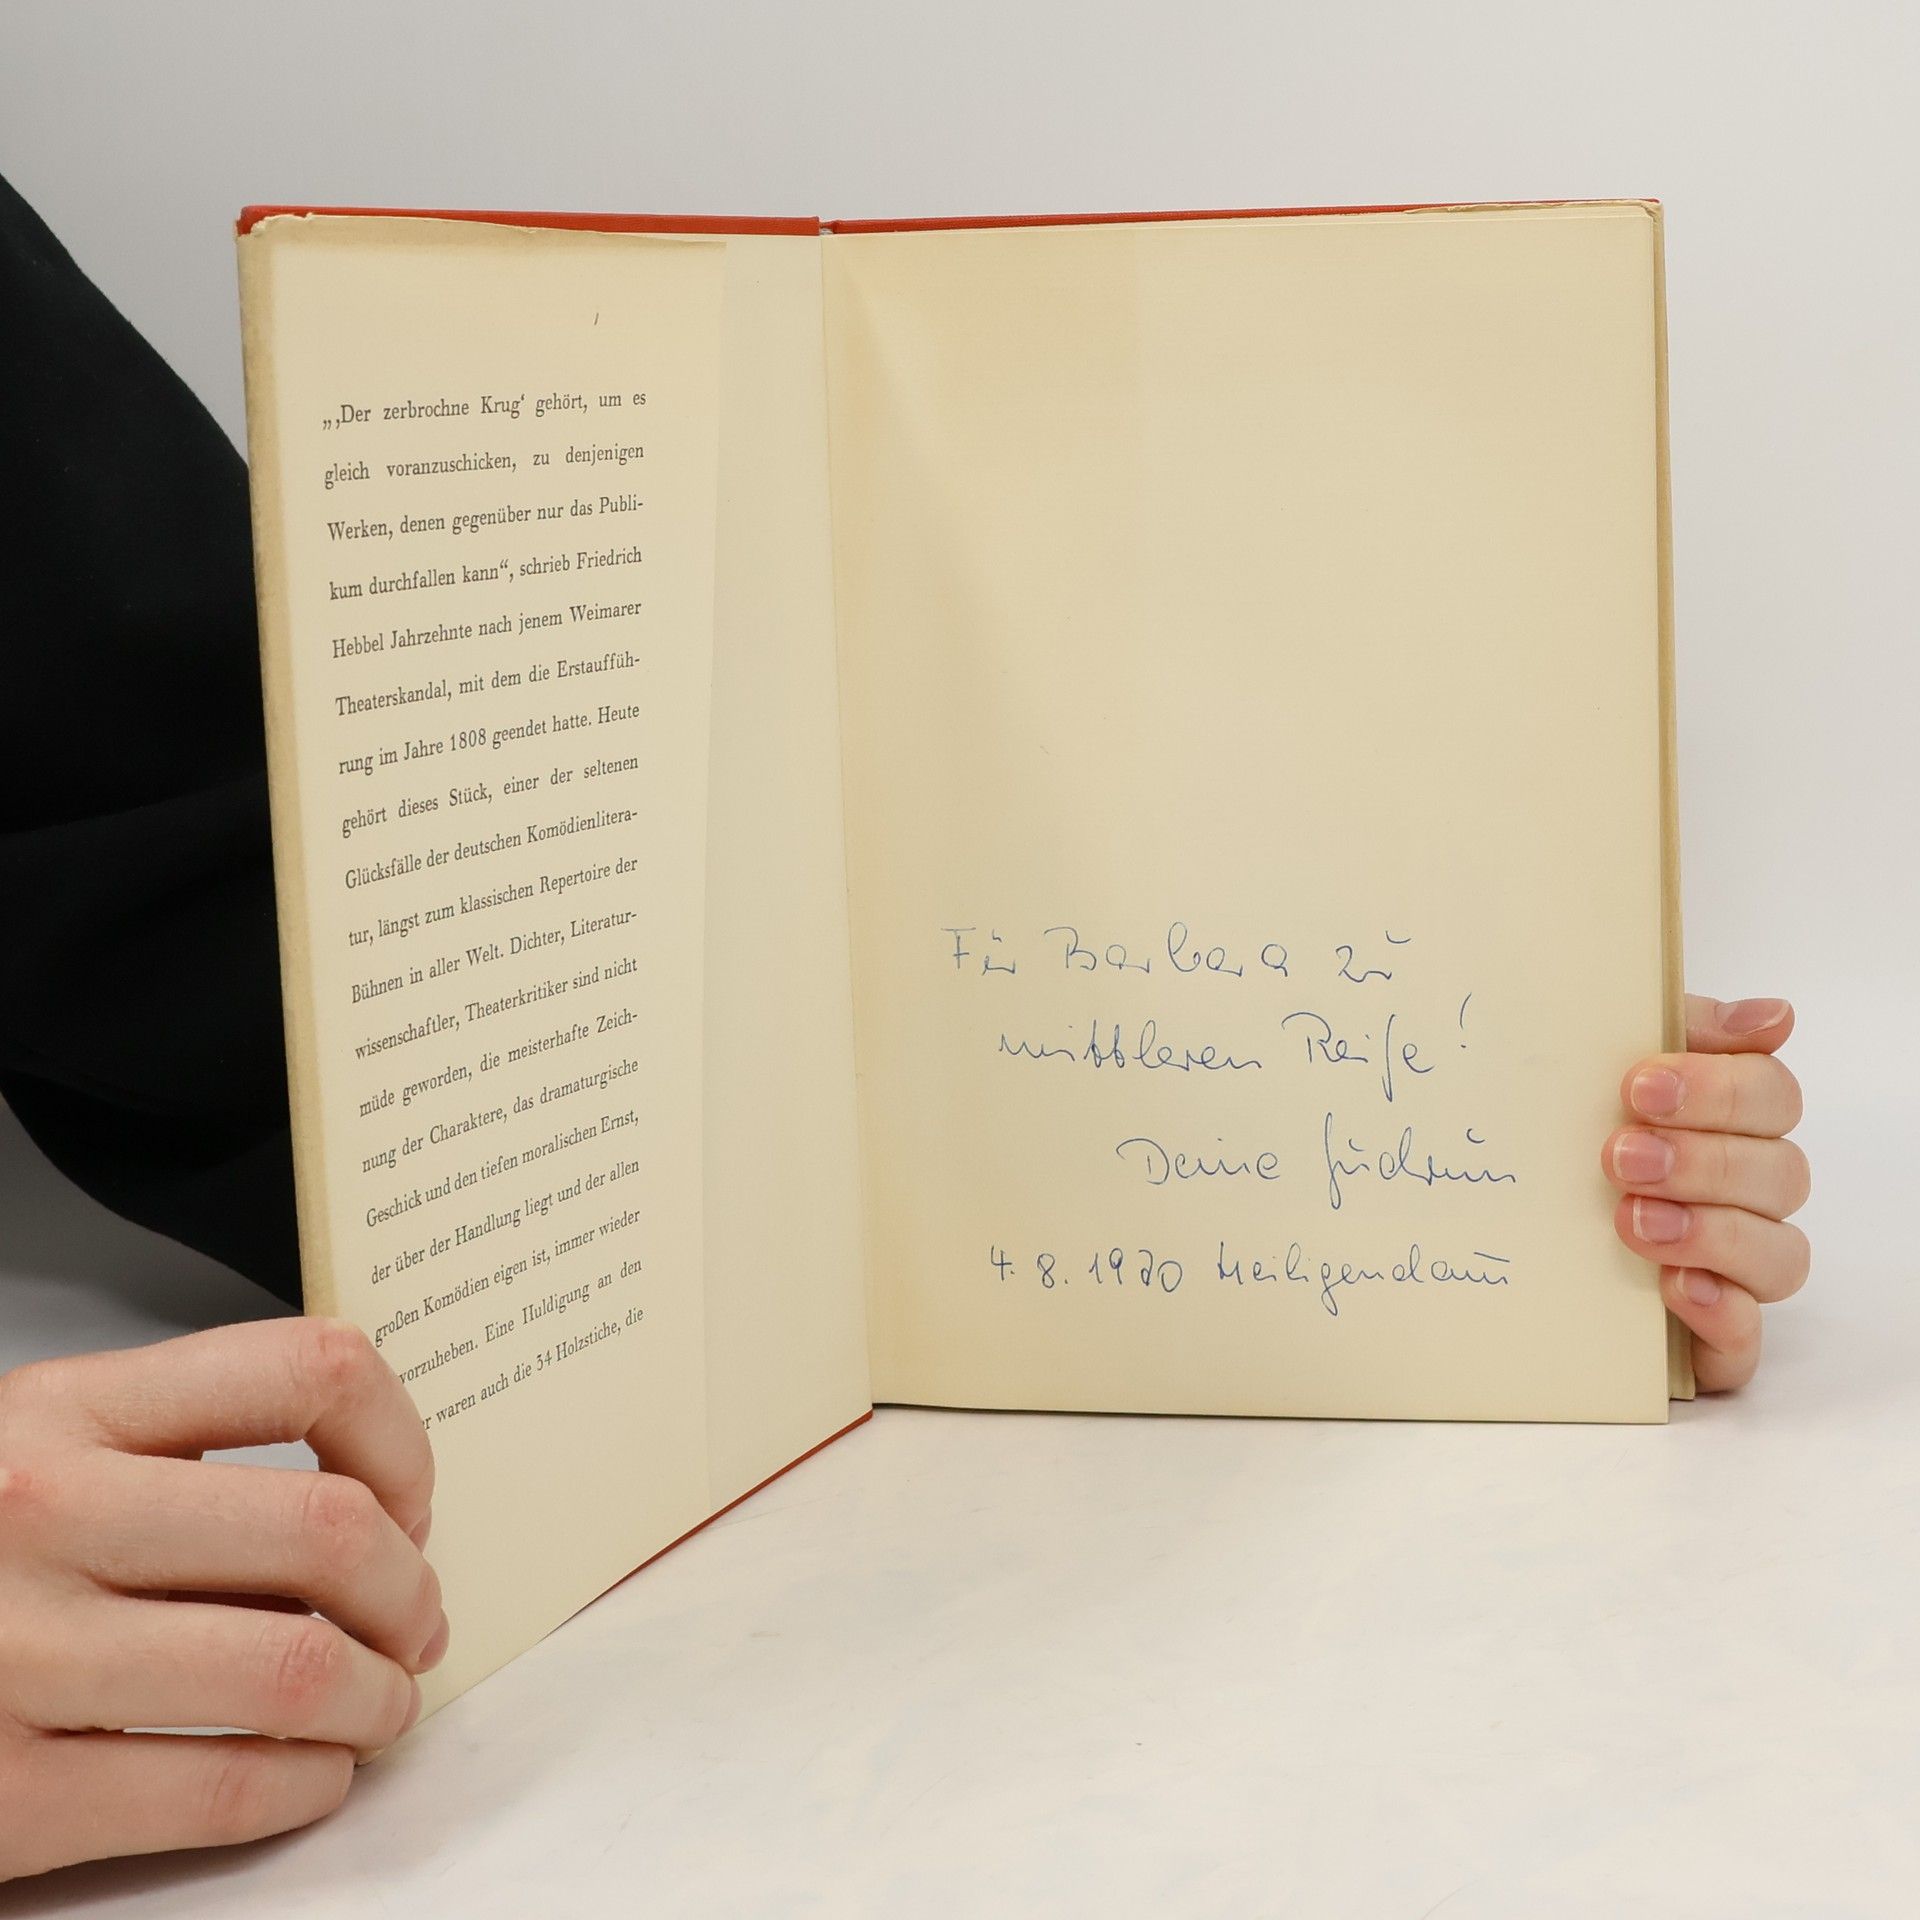 „‚Der zerbrochne Krug‘ gehört, um es
gleich voranzuschicken, zu denjenigen
Werken, denen gegenüber nur das Publi-
kum durchfallen kann“, schrieb Friedrich
Hebbel Jahrzehnte nach jenem Weimarer
Theaterskandal, mit dem die Erstauffüh-
rung im Jahre 1808 geendet hatte. Heute
gehört dieses Stück, einer der seltenen
Glücksfälle der deutschen Komödienlitera-
tur, längst zum klassischen Repertoire der
Bühnen in aller Welt. Dichter, Literatur-
wissenschaftler, Theaterkritiker sind nicht
müde geworden, die meisterhafte Zeich-
nung der Charaktere, das dramaturgische
Geschick und den tiefen moralischen Ernst,
der über der Handlung liegt und der allen
großen Komödien eigen ist, immer wieder
vorzuheben. Eine Huldigung an den
waren auch die 34 Holzstiche, die
Für Barbara zu
mittleren Reife!
Deine Gudrun
4. 8. 1970 Heiligendamm